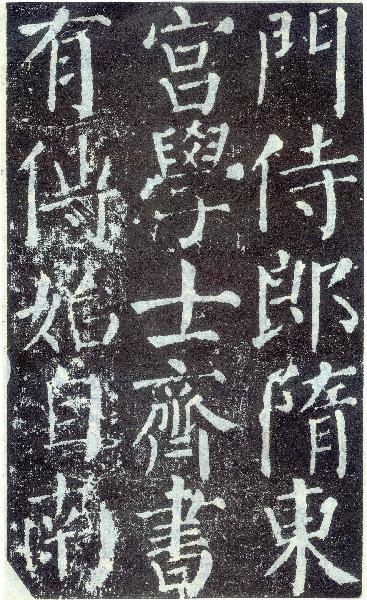 門侍郎隋東
宮學士齊書
有傳始自南